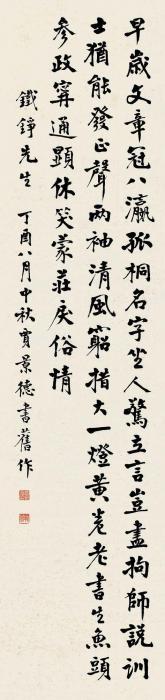 早歲文章冠八瀛孤桐名字坐人驚立言豈盡拘師說訓
士猶能發正聲兩袖清風窮措大一燈黃卷老書生魚頭
參政寧通顯休笑蒙莊戾俗情
鐵錚先生 丁酉八月中秋賈景德書舊作